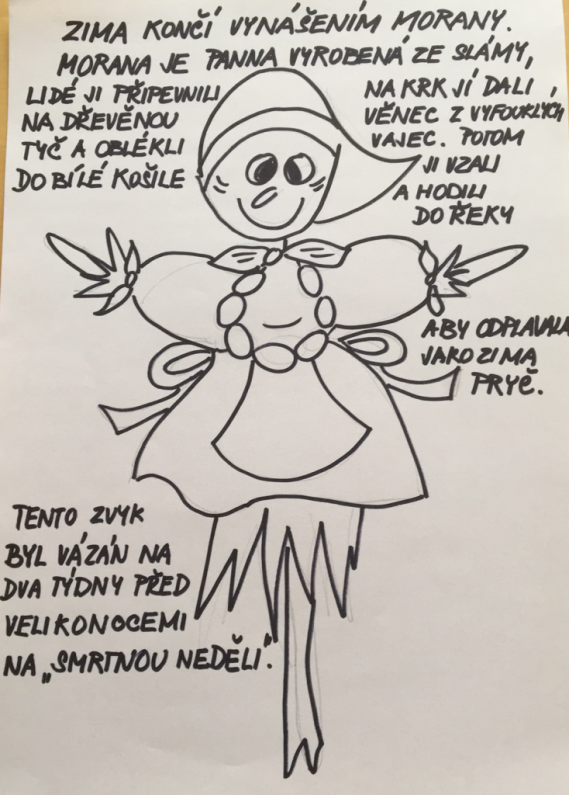 ZIMA KONČÍ VYNÁŠENÍM MORANY.
MORANA JE PANNA VYROBENÁ ZE SLÁMY,
LIDÉ JI PŘIPEVNILI
NA DŘEVĚNOU
TYČ A OBLÉKLI
DO BÍLÉ KOŠILE
NA KRK JÍ DALI
VĚNEC Z VYFOUKLÝCH
VAJEC. POTOM
JI VZALI
A HODILI
DO ŘEKY
ABY ODPLAVALA
JAKO ZIMA
PRYČ.
TENTO ZVYK
BYL VÁZÁN NA
DVA TÝDNY PŘED
VELIKONOCEMI
NA „SMRTNOU NEDĚLI".